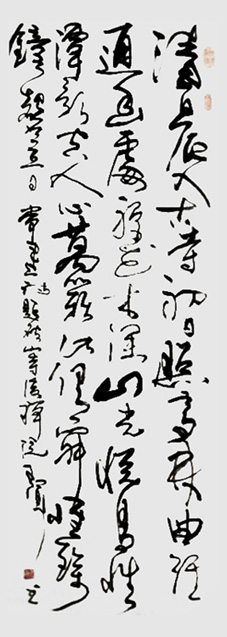 清晨入古寺初日照高林曲徑
通幽處禪房花木深山光悦鳥性
潭影空人心萬籟此俱寂惟餘
鐘磬音 常建 題破山寺後禪院